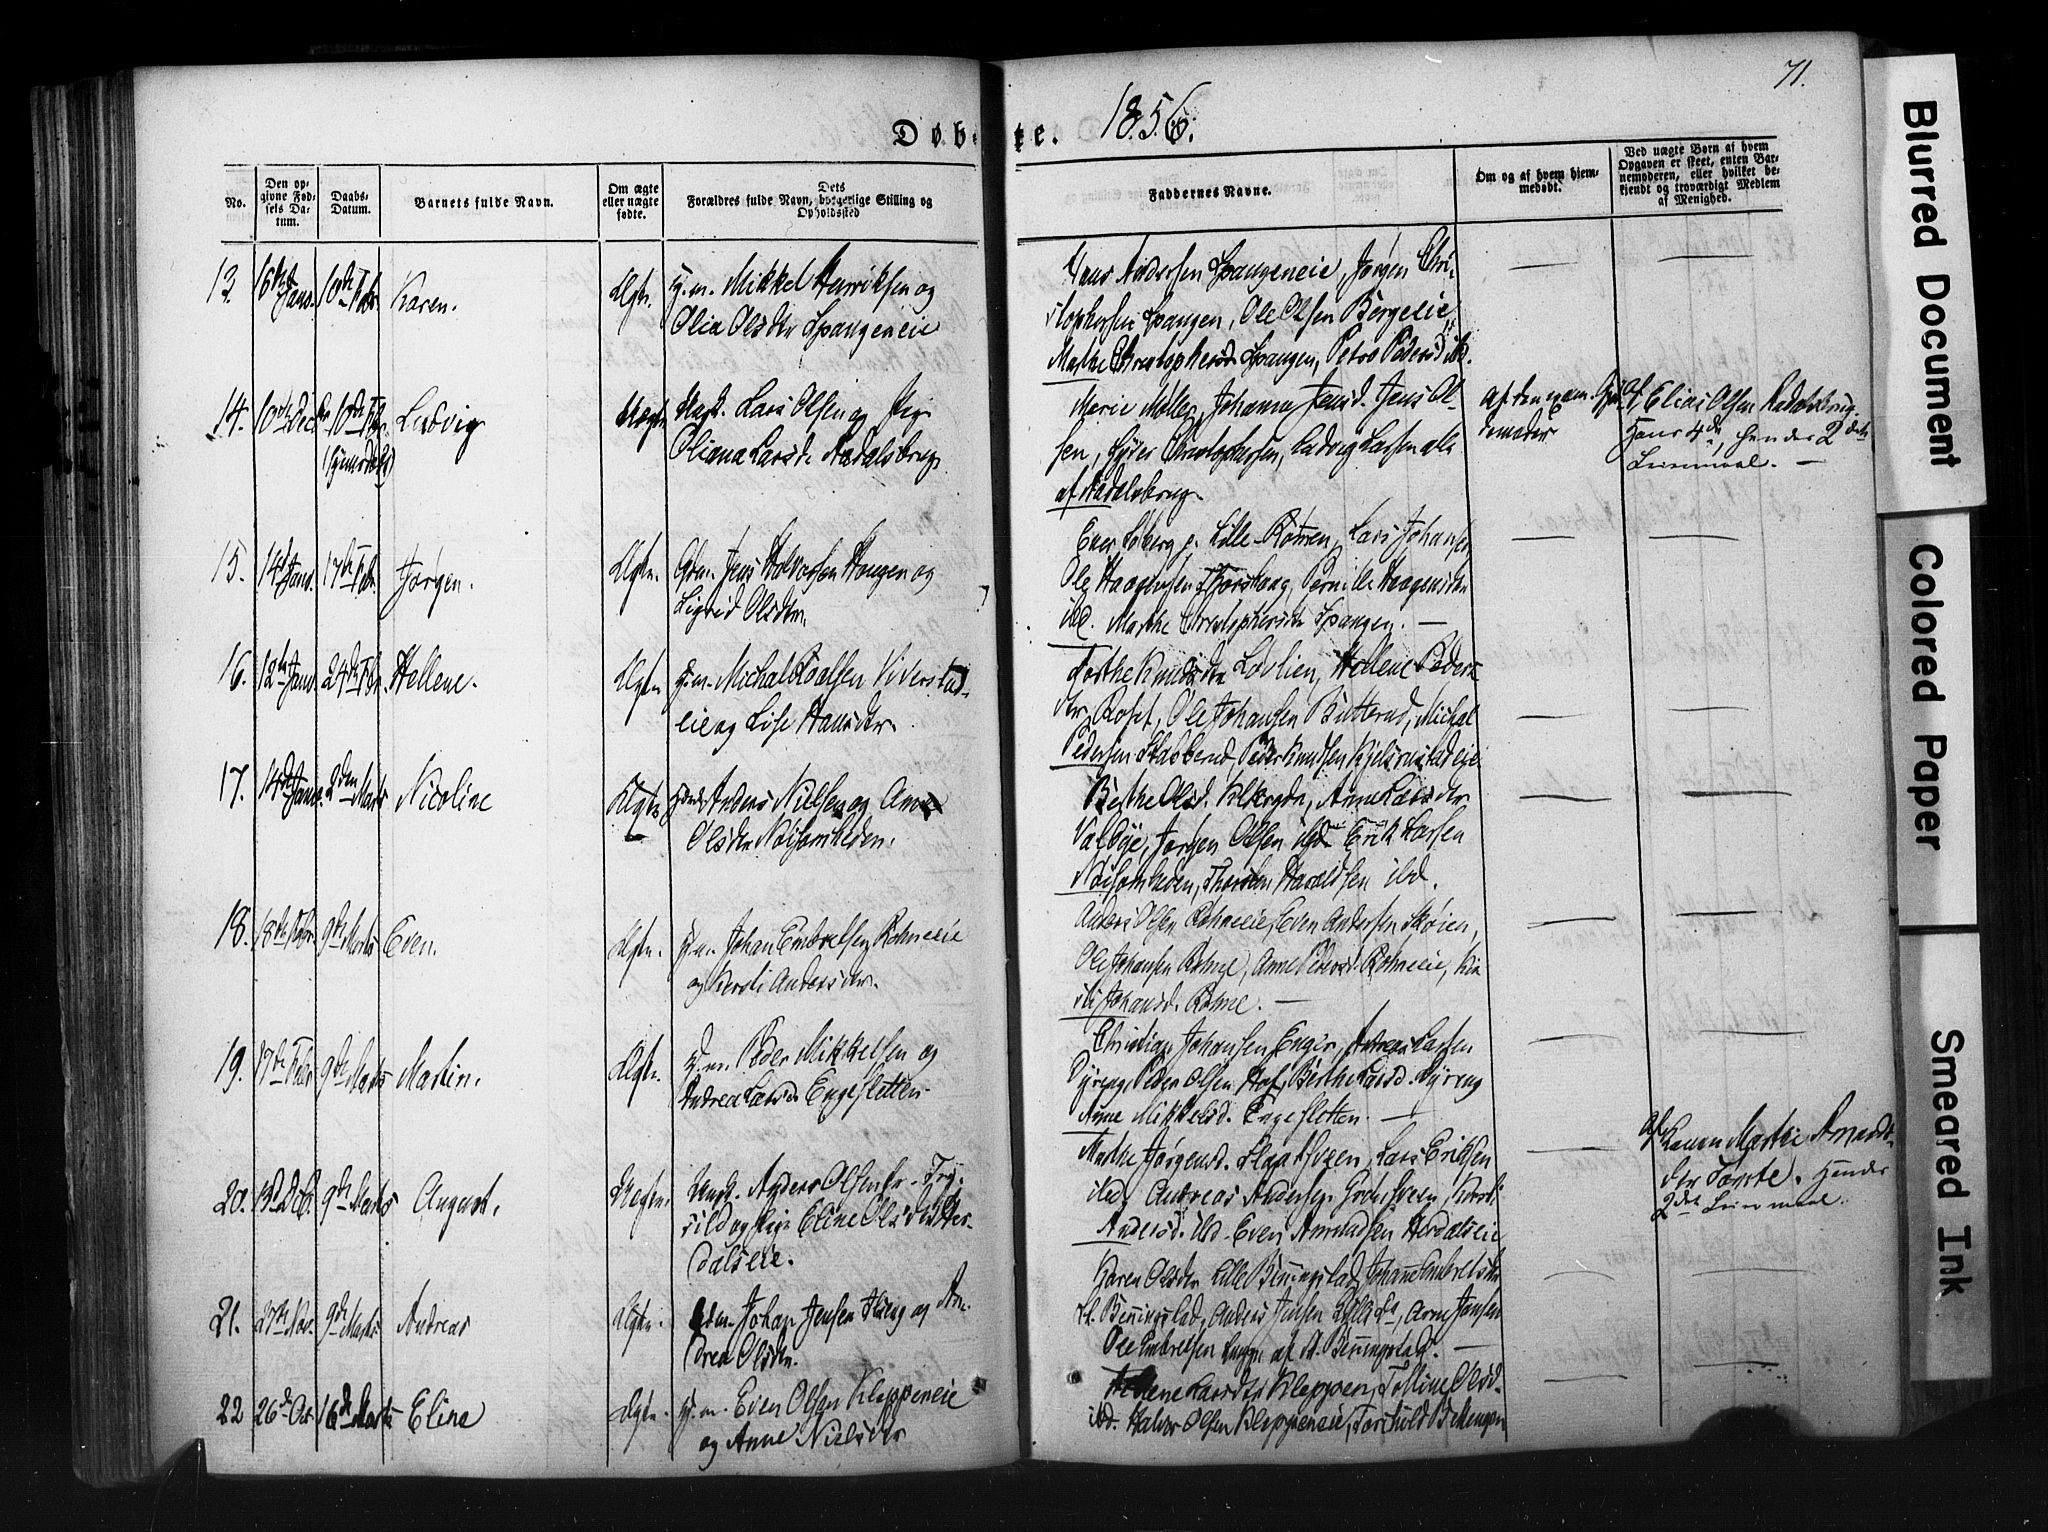 71.
Døb- te. 1856.
No.
Den opgivne Fødsels Datum.
Daabs-Datum.
Barnets fulde Navn.
Om ægte eller uægte fødte.
Dets Forældres fulde Navn, borgerlige Stilling og Opholdssted
Faddernes Navne.
Om og af hvem hjemmedøbt.
Ved uægte Børn af hvem Opgaven er skeet, enten Barnemoderen, eller hvilket bekjendt og troværdigt Medlem af Menighed.
13. 16de Janr. 10de Febr. Karen. Ægte. H.m. Mikkel Henriksen og
Olea Olsdtr Spangeneie
Hans Andersen Spangeneie, Jørgen Chri-
stophersen Spangen, Ole Olsen Børgeeie,
Marthe Christophersd. Spangen, Petra Pedersd. ibd.
14. 10de Decbr 10de Febr. Ludvig Uægte Ungk. Lars Olsen og Pige
Oliana Larsdr Aadalsbrug.
Marie Møller, Johanna Jensd. Jens Ol-
sen, Syver Christophersen, Ludvig Larsen alle
af Aadalsbrug.
af den exam. Gjor-
demoder
af Elias Olsen Aadalsbrug.
Hans 4de, hendes 2det
Leiermaal. —
15. 14d Janr. 17de Febr. Jørgen. Ægte. Gdm. Jens Halvorsen Haugen og
Sigrid Olsdtr.
Lars Johansen
Ole Haagensen Thorshaug, Pernille Haagensdtr
ibd. Marthe Christophersdtr Spangen. —
16. 12te Janr. 24de Febr. Hellene. Ægte H.m. Michal Roalsen Viverstad-
eie og Lise Hansdtr.
Marthe Knudsdtr Løvlien, Hellene Peders-
dtr Roset, Ole Johansen Butterud, Michal
Pedersen Stabberud, Peder Knudsen Kjelsrustadeie
17. 14de Janr. 2den Marts Nicoline Ægte Anders Nielsen og Anne
Olsdtr Nøisomheden.
Berthe Olsd. Anne Larsdtr
Valbye, Jørgen Olsen ibd Erik Larsen
Nøisomheden, Thorsten Haraldsen ibd.
18. 18de Febr. 9de Marts Even. Ægte. H.m. Johan Embretsen Rohneeie
og Kersti Andersdtr.
Anders Olsen Rohneeie, Even Andersen Skøien,
Ole Johansen Rohne, Anne Pedersd. Rohneeie, Ker-
sti Johansd. Rohne. —
19. 17de Febr 9de Marts Martin. Ægte. H.m. Peder Mikkelsen og
Andrea Larsdr Engesletten
Christian Johansen Enger, Andreas Larsen
Dyreng, Peder Olsen Hof, Berthe Larsd. Dyreng
Anne Mikkelsd. Engesletten. —
20. 13d Dcb. 9de Marts August. Uægte. Ungk. Anders Olsen fr. Try-
sild og Pige Eline Olsdtr Her-
dalseie.
Marthe Jørgensd. Slaatsveen, Lars Eriksen
ibd, Andreas Andersen
Andersd. ibd. Even Amundsen Herdalseie
af Karen Marthie Amunds-
dtr Hendes
2det Leiermaal.
21. 27de Nov. 9de Marts Andreas Ægte. Gdm. Johan Jensen og An-
drea Olsdtr.
Karen Olsdtr Lille Benningstad, Johanne Embretsdtr
St. Benningstad, Anders Jensen Arne Jansen
Ole Embretsen af St. Benningstad. —
22 26de Oct. 16de Marts Eline Ægte. H.m. Even Olsen Kleppeneie
og Anne Nielsdtr
Hellene Larsdtr Kleppen, Olsd.
ibd. Halvor Olsen Kleppeneie,
Blurred Document
Colored Paper
Smeared Ink